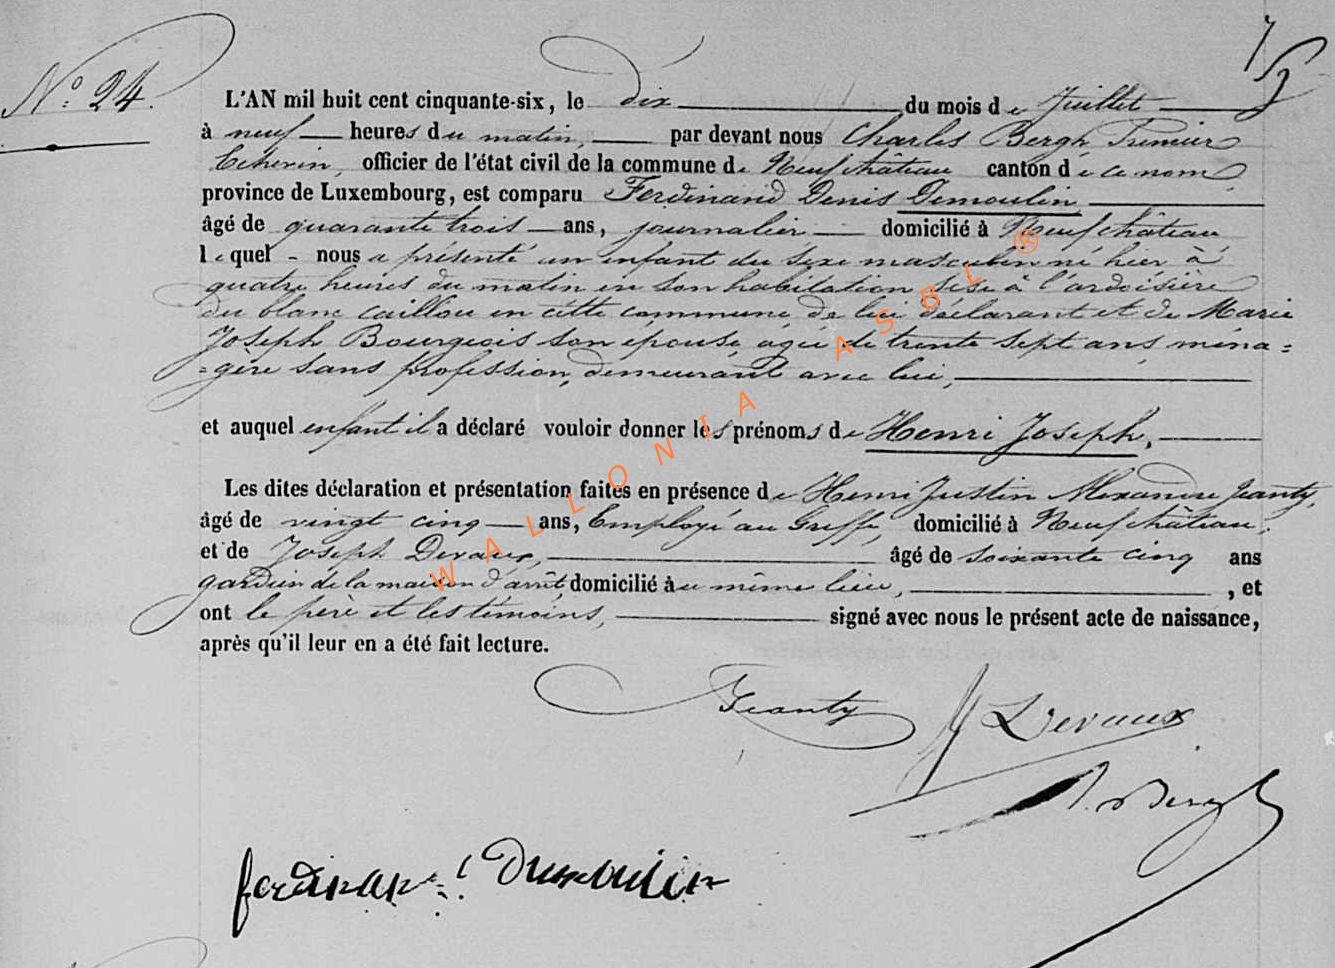 Nº 24.
L'AN mil huit cent cinquante-six, le dix du mois de Juillet
à neuf heures du matin, par devant nous Charles Bergh Premier
Echevin, officier de l'état civil de la commune de Neufchâteau canton de ce nom
province de Luxembourg, est comparu Ferdinand Denis Demoulin
âgé de quarante trois ans, journalier domicilié à Neufchâteau
lequel - nous a présenté un enfant du sexe masculin né hier à
quatre heures du matin en son habitation sise à l'ardoisière
du blanc caillou en cette commune, de lui déclarant et de Marie
Joseph Bourgeois son épouse, agée de trente sept ans, ména=
=gère sans profession, demeurant avec lui,
et auquel enfant il a déclaré vouloir donner les prénoms de Henri Joseph,
Les dites déclaration et présentation faites en présence de Henri Justin Alexandre Jeanty,
âgé de vingt cinq ans, Employé au Greffe, domicilié à Neufchâteau,
et de Joseph Devaux, âgé de soixante cinq ans
gardien de la maison d'arrêt, domicilié au même lieu, , et
ont le père et les témoins, signé avec nous le présent acte de naissance,
après qu'il leur en a été fait lecture.
Jeanty J Devaux
Bergh
ferdinand Dumoulin
WALLONIA ASBL ®